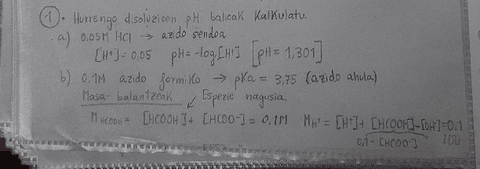 ①. Hurrengo disoluzioen pH balioak Kalkulatu.
a) 0.05M HCl → azido sendoa
[H⁺]= 0,05 pH=-log[H⁺] [pH = 1,301]
b) 0.1M azido formiko → pKa = 3,75 (azido ahula)
Masa-balantzeak Espezie nagusia.
M HCOOH = [HCOOH]+ [HCOO⁻] = 0.1M M H⁺ = [H⁺]+ [HCOOH]-[OH⁻]=0.1
0.1 - [HCOO⁻]